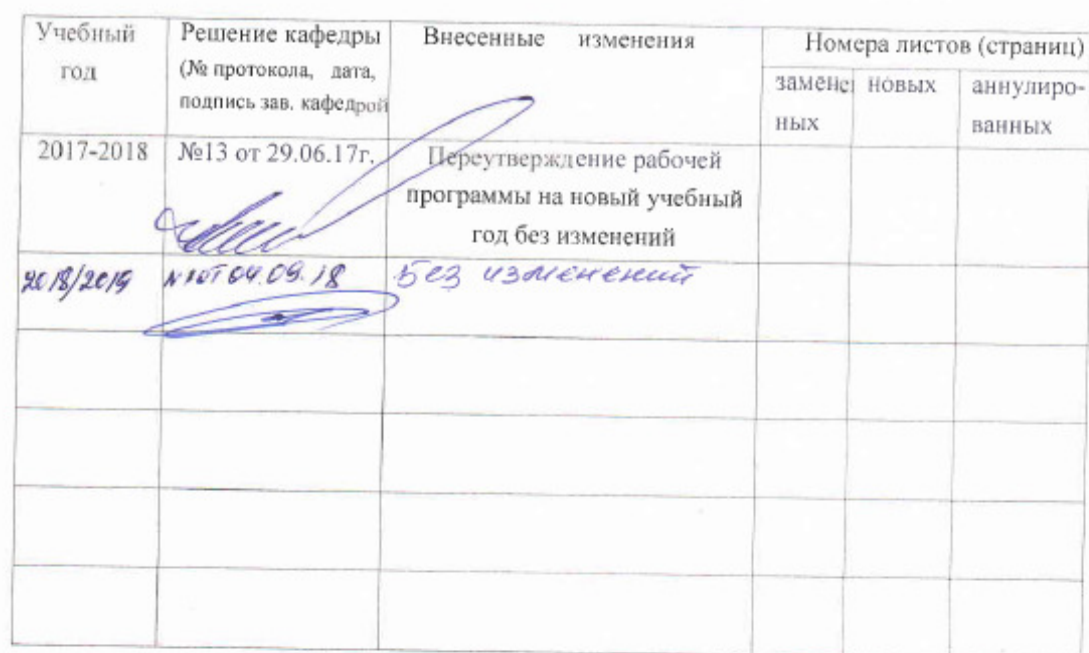 Учебный год
Решение кафедры
(№ протокола, дата,
подпись зав. кафедрой
Внесенные изменения
Номера листов (страниц)
заменен
ных
новых
аннулиро-
ванных
2017-2018
№13 от 29.06.17г.
Переутверждение рабочей
программы на новый учебный
год без изменений
2018/2019
№1 от 04.09.18
Без изменений